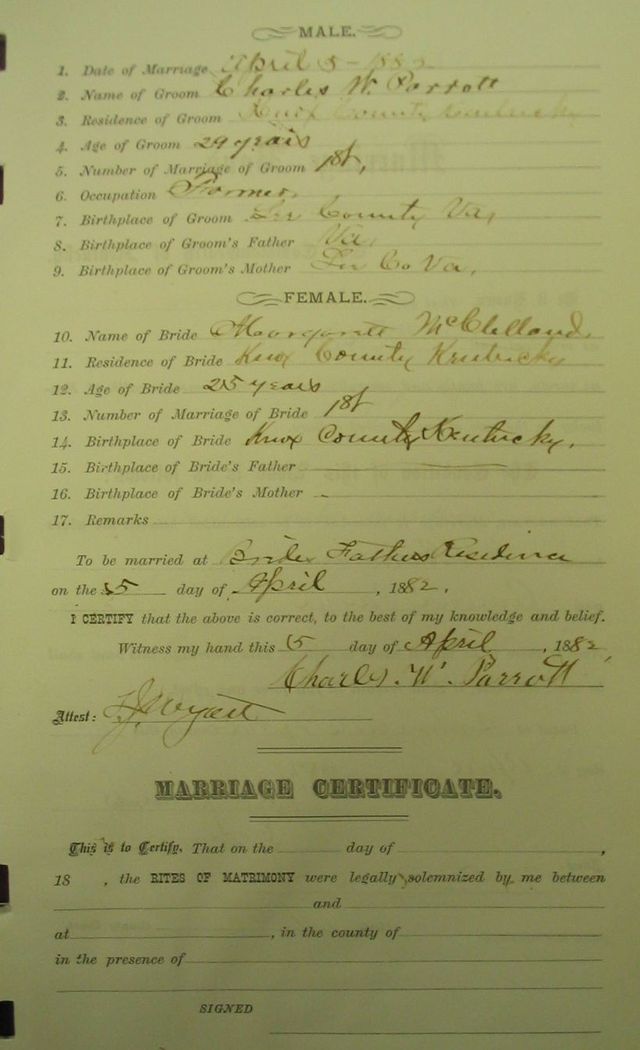 MALE.
1. Date of Marriage April 5 - 1882
2. Name of Groom Charles W. Parrott
3. Residence of Groom Knox County Kentucky
4. Age of Groom 29 years
5. Number of Marriage of Groom 1st,
6. Occupation Farmer.
7. Birthplace of Groom Lee County Va,
8. Birthplace of Groom's Father Va,
9. Birthplace of Groom's Mother Lee Co Va,
FEMALE.
10. Name of Bride Margarett McClelland,
11. Residence of Bride Knox County Kentucky
12. Age of Bride 25 years
13. Number of Marriage of Bride 1st
14. Birthplace of Bride Knox County Kentucky,
15. Birthplace of Bride's Father
16. Birthplace of Bride's Mother
17. Remarks
To be married at Brides Fathers Residence
on the 5 day of April, 1882.
I CERTIFY that the above is correct, to the best of my knowledge and belief.
Witness my hand this 5 day of April, 1882
Charles. W. Parrott
Attest: Wyatt
MARRIAGE CERTIFICATE.
This is to Certify, That on the day of ,
18 , the RITES OF MATRIMONY were legally solemnized by me between
and
at , in the county of
in the presence of
SIGNED